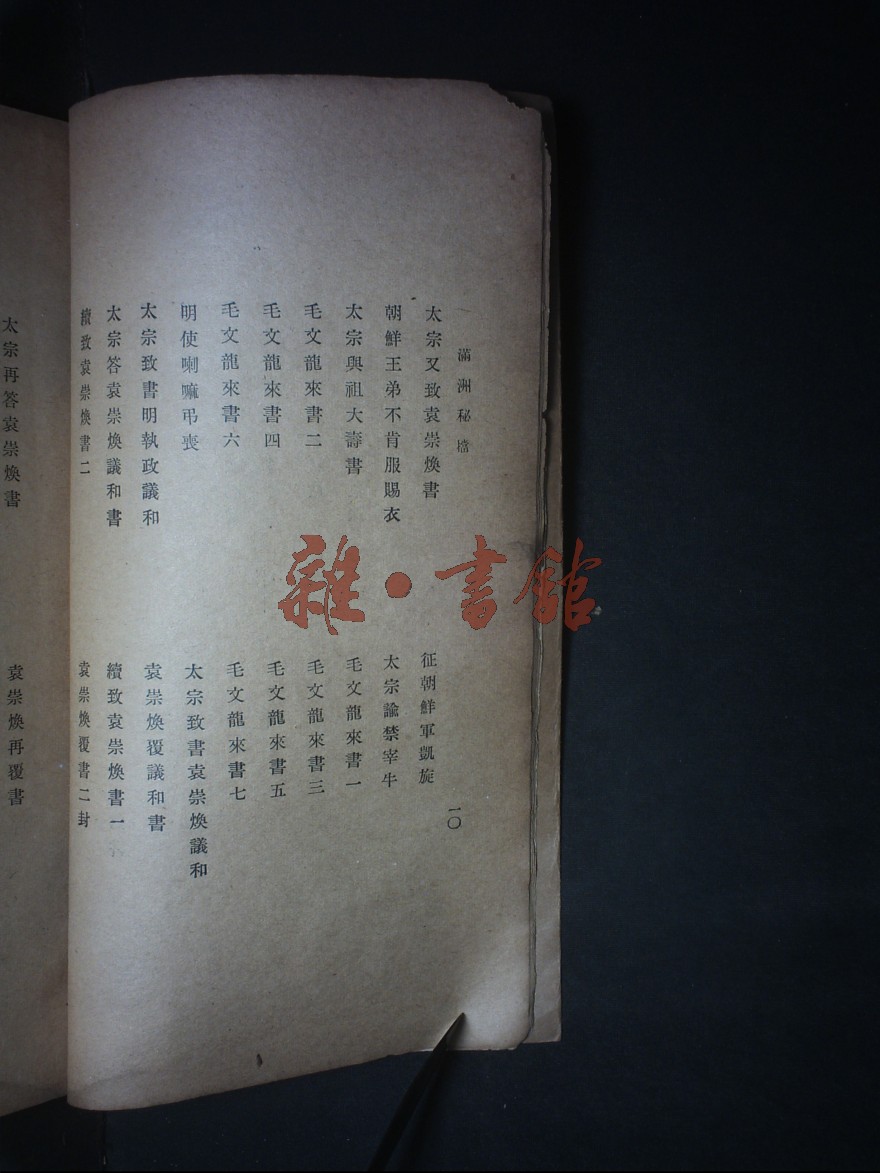 滿洲秘檔
一〇
太宗又致袁崇煥書
征朝鮮軍凱旋
朝鮮王弟不肯服賜衣
太宗諭禁宰牛
太宗與祖大壽書
毛文龍來書一
毛文龍來書二
毛文龍來書三
毛文龍來書四
毛文龍來書五
毛文龍來書六
毛文龍來書七
明使喇嘛弔喪
太宗致書袁崇煥議和
太宗致書明執政議和
袁崇煥覆議和書
太宗答袁崇煥議和書
續致袁崇煥書一
續致袁崇煥書二
袁崇煥覆書二封
太宗再答袁崇煥書
袁崇煥再覆書
雜·書館